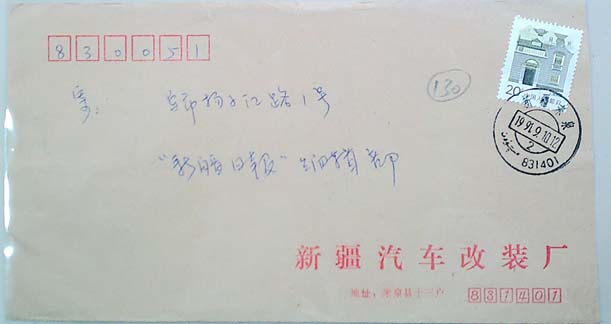 830051
130
寄: 本市扬子江路1号
20
"新疆日报"编辑部
新疆 米泉
1991.9.10.12
2
831401
新疆汽车改装厂
地址:米泉县十三户 831401